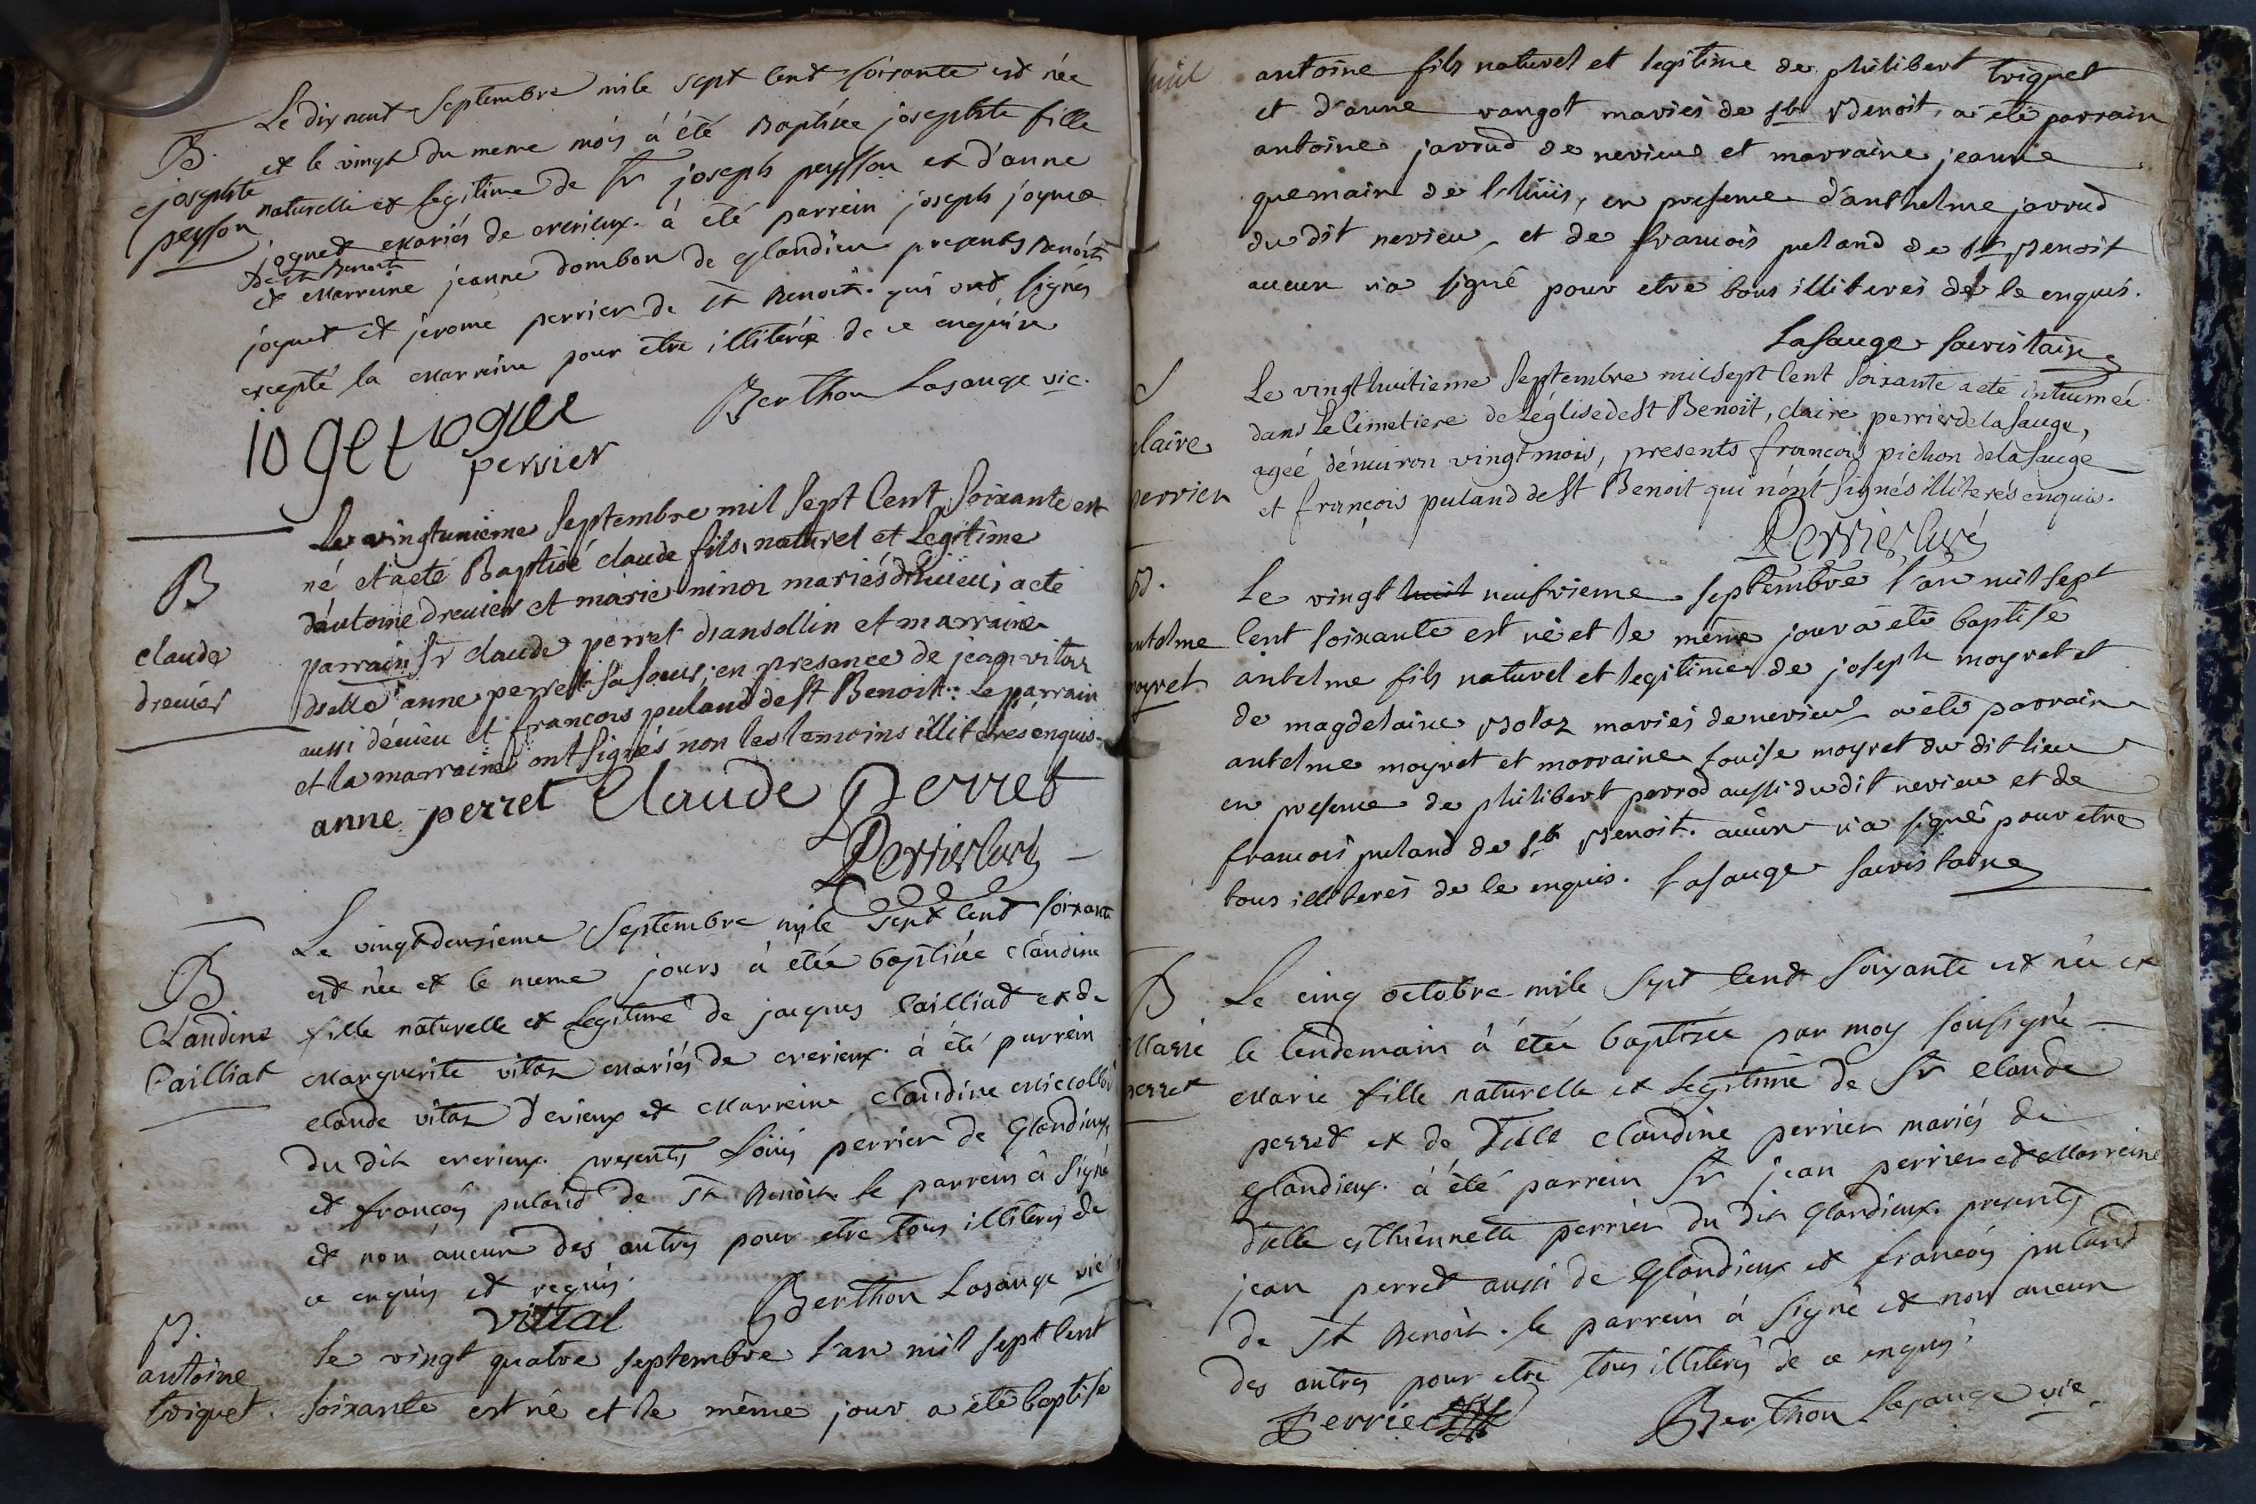 B.
josephte
peysson
Le dix neuf Septembre mile sept Cent soixante est née
et le vingt du meme mois à été Baptisée josephte fille
naturelle et legitime de Sr joseph peysson et d'anne
joguet mariés de evrieux. à été parrein joseph joguet
de St Benoit
et Marreine jeanne dombon de glandieu presents Benoit
joguet et jerome perrier de St Benoit. qui ont signés
excepté la Marreine pour etre illiterée de ce enquise
Berthon Lasauge vic.
joget joguet
perrier
B
claude
drevier
Le vingtunieme Septembre mil sept Cent soixante est
né et a eté Baptisé claude fils naturel et Legitime
d'antoine drevier et marie ninoz mariés d'evieu; a eté
parrain Sr claude perret dansollin et marraine
dselle anne perret sa soeur; en presence de jean vitoz
aussi d'évieu et francois puland de St Benoit: Le parrain
et la marraine ont signés non les temoins illiterés enquis.
anne perret Claude Perret
Perrier Curé
B
Claudine
Cailliat
Le vingt deuxieme Septembre mile sept Cent soixante
est née et le meme jours à étée baptisée Claudine
fille naturelle et Legitime de jacques Cailliat et de
Marguerite vitoz Mariés de evrieux. à été parrein
Claude vitoz d'evieux et Marreine Claudine
du dit evrieux. presents Loüis perrier de Glandieux
et françois puland de St Benoit. le parrein à signé
et non aucun des autres pour etre tous illiterés de
ce enquis et requis.
vittal
Berthon Lasauge vic
B.
antoine
triquet.
Le vingt quatre septembre l'an mil sept Cent
soixante est né et le même jour a été baptisé
antoine fils naturel et legitime de philibert triquet
et d'anne vangot mariés de St Benoit, a été parrain
antoine jarrud de nevieu et marraine jeanne
quemain de Lhuis, en presence d'anthelme jarrud
du dit nevieu, et de francois puland de St Benoit
aucun n'a signé pour etre tous illiterés de ce enquis.
Lasauge sacristain
S
claire
perrier
Le vingthuitieme Septembre mil sept Cent soixante a eté inhumée
dans Le Cimetiere de L'église de St Benoit, claire perrier de la sauge,
ageé d'environ vingt mois, presents francois pichon de la sauge
et françois puland de St Benoit qui n'ont signés illiterés enquis.
Perrier Curé
B.
antelme
moyret
Le vingt huit neufvieme septembre l'an mil sept
Cent soixante est né et le même jour a été baptisé
antelme fils naturel et legitime de joseph moyret et
de magdelaine Bolaz mariés de nevieu a été parrain
antelme moyret et marraine Louise moyret du dit lieu
en presence de philibert parrod aussi du dit nevieu et de
francois puland de St Benoit. aucun n'a signé pour etre
tous illiterés de ce enquis. Lasauge sacristain
B
Marie
perret
Le cinq octobre mile sept Cent soixante est née et
le lendemain à étée baptisée par moy soussigné
Marie fille naturelle et Legitime de Sr Claude
perret et de Dlle Claudine perrier mariés de
Glandieux. à été parrein Sr jean perrier et Marreine
dlle esthiennette perrier du dit Glandieux. presents
jean perret aussi de Glandieux et françois puland
de St Benoit. le parrein à signé et non aucun
des autres pour etre tous illiterés de ce enquis.
Perrier
Berthon Lasauge vic.